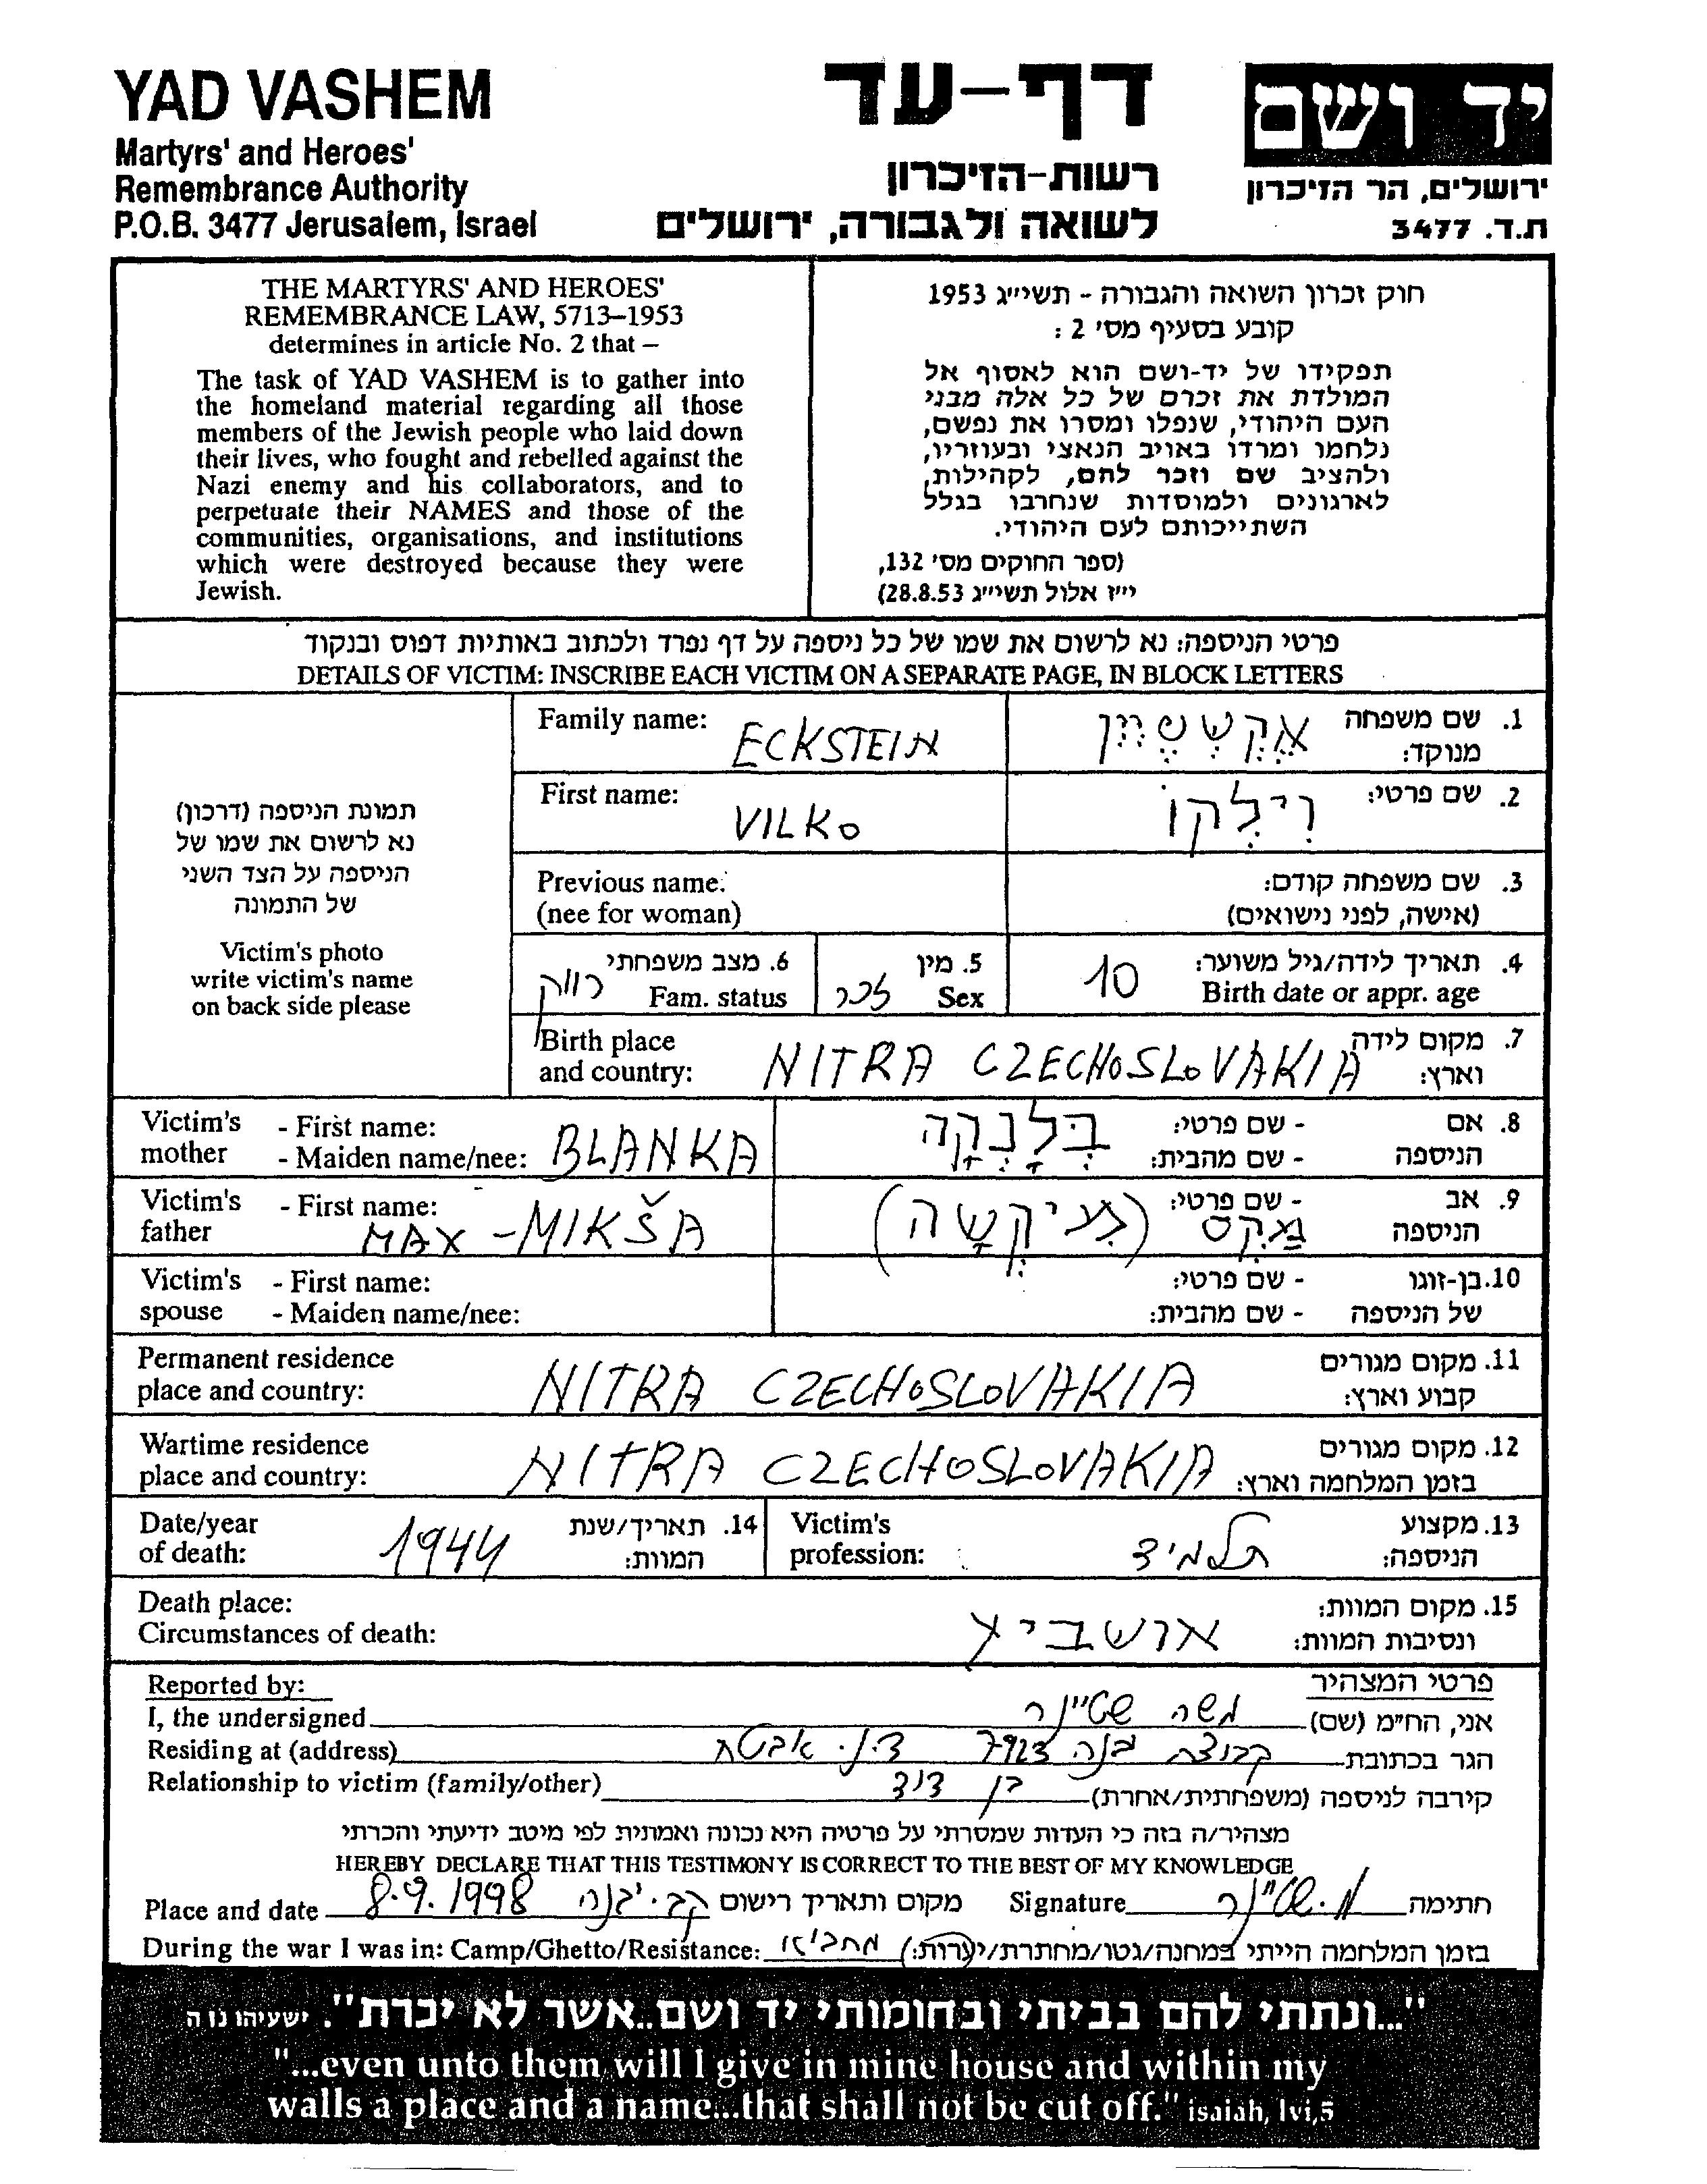 YAD VASHEM
Martyrs' and Heroes'
Remembrance Authority
P.O.B. 3477 Jerusalem, Israel
דף-עד
רשות-הזיכרון
לשואה ולגבורה, ירושלים
יד ושם
ירושלים, הר הזיכרון
ת.ד. 3477
THE MARTYRS' AND HEROES'
REMEMBRANCE LAW, 5713–1953
determines in article No. 2 that –
The task of YAD VASHEM is to gather into
the homeland material regarding all those
members of the Jewish people who laid down
their lives, who fought and rebelled against the
Nazi enemy and his collaborators, and to
perpetuate their NAMES and those of the
communities, organisations, and institutions
which were destroyed because they were
Jewish.
חוק זכרון השואה והגבורה - תשי״ג 1953
קובע בסעיף מס׳ 2 :
תפקידו של יד-ושם הוא לאסוף אל
המולדת את זכרם של כל אלה מבני
העם היהודי, שנפלו ומסרו את נפשם,
נלחמו ומרדו באויב הנאצי ובעוזריו,
ולהציב שם וזכר להם, לקהילות,
לארגונים ולמוסדות שנחרבו בגלל
השתייכותם לעם היהודי.
(ספר החוקים מס׳ 132,
י״ז אלול תשי״ג 28.8.53)
פרטי הניספה: נא לרשום את שמו של כל ניספה על דף נפרד ולכתוב באותיות דפוס ובנקוד
DETAILS OF VICTIM: INSCRIBE EACH VICTIM ON A SEPARATE PAGE, IN BLOCK LETTERS
תמונת הניספה (דרכון)
נא לרשום את שמו של
הניספה על הצד השני
של התמונה
Victim's photo
write victim's name
on back side please
Family name: ECKSTEIN
1. שם משפחה מנוקד: אֶקְשְׁטֶיְין
First name: VILKO
2. שם פרטי: וִילְקוֹ
Previous name:
(nee for woman)
3. שם משפחה קודם:
(אישה, לפני נישואים)
6. מצב משפחתי
Fam. status רווק
5. מין
Sex זכר
4. תאריך לידה/גיל משוער:
Birth date or appr. age 10
Birth place
and country: NITRA CZECHOSLOVAKIA
7. מקום לידה
וארץ:
Victim's mother - First name:
- Maiden name/nee: BLANKA
8. אם - שם פרטי: בְּלָנְקָה
הניספה - שם מהבית:
Victim's father - First name:
MAX - MIKŠA
9. אב - שם פרטי:
הניספה מַקְס (מִיקְשָׁה)
Victim's - First name:
spouse - Maiden name/nee:
10. בן-זוגו - שם פרטי:
של הניספה - שם מהבית:
Permanent residence
place and country: NITRA CZECHOSLOVAKIA
11. מקום מגורים
קבוע וארץ:
Wartime residence
place and country: NITRA CZECHOSLOVAKIA
12. מקום מגורים
בזמן המלחמה וארץ:
Date/year
of death: 1944
14. תאריך/שנת
המוות:
Victim's
profession:
13. מקצוע
הניספה: תלמיד
Death place:
Circumstances of death:
15. מקום המוות:
ונסיבות המוות: אושביץ
Reported by:
פרטי המצהיר
I, the undersigned משה שטיינר אני, הח״מ (שם)
Residing at (address) קבוצת יבנה 79233 ד.נ. אבטח הגר בכתובת
Relationship to victim (family/other) בן דוד קירבה לניספה (משפחתית/אחרת)
מצהיר/ה בזה כי העדות שמסרתי על פרטיה היא נכונה ואמתית לפי מיטב ידיעתי והכרתי
HEREBY DECLARE THAT THIS TESTIMONY IS CORRECT TO THE BEST OF MY KNOWLEDGE
Place and date 8.9.1998 קב. יבנה מקום ותאריך רישום Signature מ. שטיינר חתימה
During the war I was in: Camp/Ghetto/Resistance: מחבוא בזמן המלחמה הייתי במחנה/גטו/מחתרת/יערות:)
"...ונתתי להם בביתי ובחומותי יד ושם..אשר לא יכרת". ישעיהו נו ה
"...even unto them will I give in mine house and within my
walls a place and a name...that shall not be cut off." isaiah, lvi,5